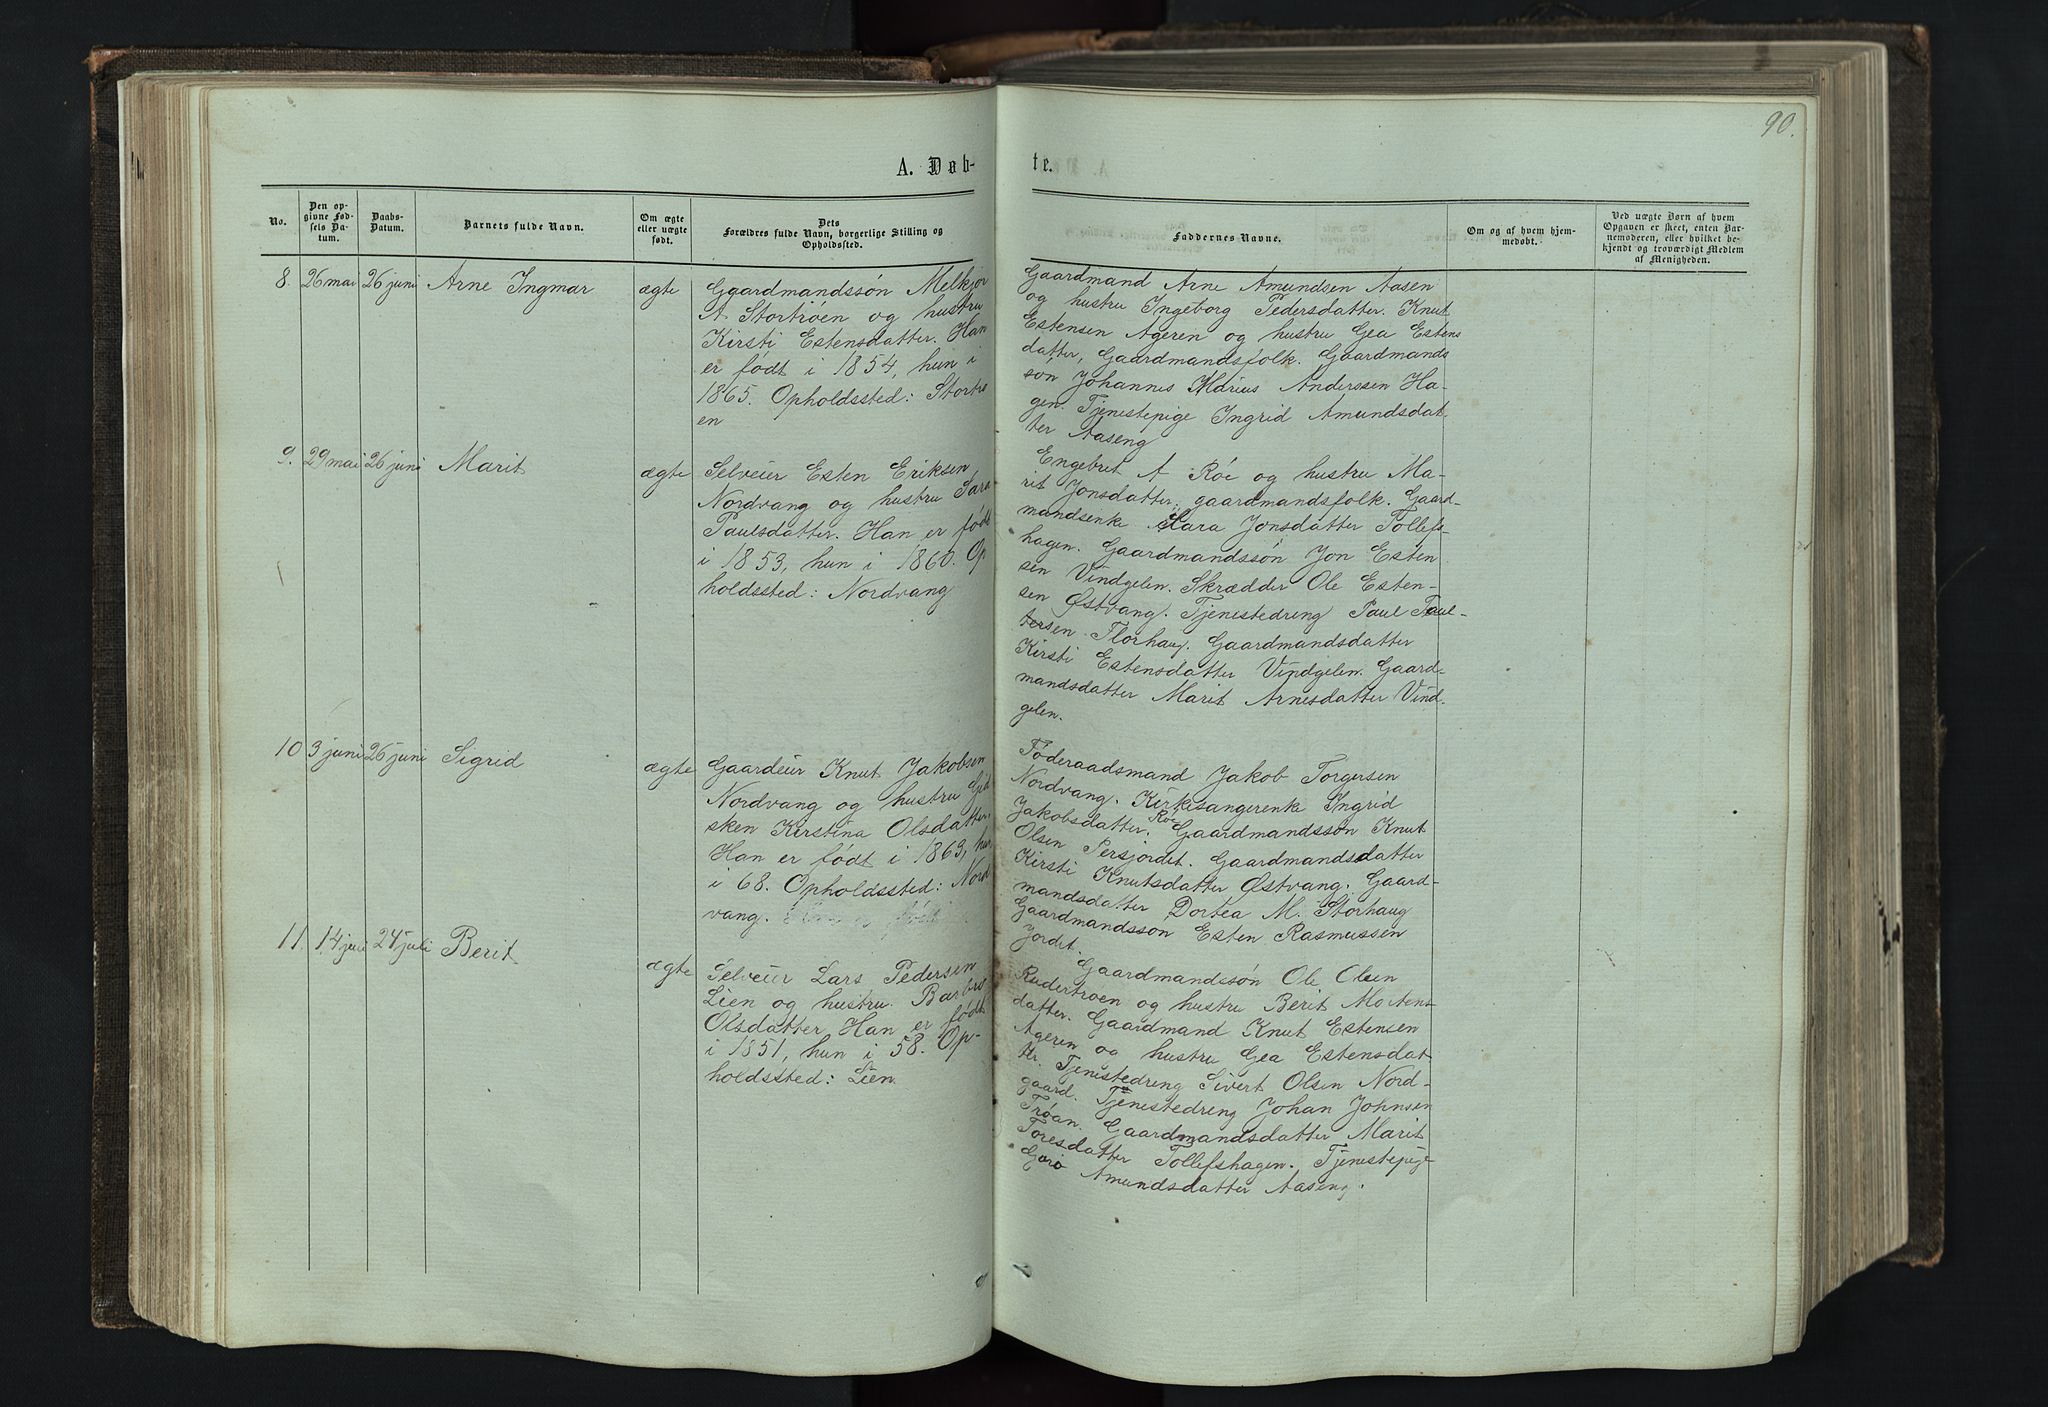 90.
A. Døb-
te.
No.
Den op-
givne Fød-
sels Da-
tum.
Daabs-
Datum.
Barnets fulde Navn.
Om ægte
eller uægte
født.
Dets
Forældres fulde Navn, borgerlige Stilling og
Opholdssted.
Faddernes Navne.
Om og af hvem hjem-
medøbt.
Ved uægte Børn af hvem
Opgaven er skeet, enten Bar-
nemoderen, eller hvilket be-
kjendt og troværdigt Medlem
af Menigheden.
8. 26 mai 26 juni Arne Ingmar ægte
Gaardmandssøn Melkjor
A. Stortrøen og hustru
Kirsti Estensdatter. Han
er født i 1854, hun i
1865. Opholdssted: Stortrø
en
Gaardmand Arne Amundsen Aasen
og hustru Ingeborg Pedersdatter. Knut
Estensen Ageren og hustru Gea Estens
datter, Gaardmandsfolk. Gaardmands
søn Johannes Marius Anderssen Ha-
gen. Tjenestepige Ingrid Amundsdat
ter Aaseng
9. 29 mai 26 juni Marit ægte
Selveier Esten Eriksen
Nordvang og hustru Sara
Paulsdatter. Han er født
i 1853, hun i 1860. Op
holdssted: Nordvang
Engebret A Røe og hustru Ma-
rit Jonsdatter, gaardmandsfolk. Gaard-
mandsenke Sara Jonsdatter Tollefs-
hagen. Gaardmandssøn Jon Esten
sen Vindgelen. Skrædder Ole Esten-
sen Østvang. Tjenestedreng Paul Paul-
sen Florhaug. Gaardmandsdatter
Kirsti Estensdatter Vindgelen. Gaard-
mandsdatter Marit Arnesdatter Vind-
gelen.
10 3 juni 26 juni Sigrid ægte
Gaardeier Knut Jakobsen
Nordvang og hustru Gid
sken Kirstina Olsdatter.
Han er født i 1863, hun
i 68. Opholdssted: Nord
vang.
Føderaadsmand Jakob Torgersen
Nordvang. Kirkesangerenke Ingrid
Jakobsdatter Røe. Gaardmandssøn Knut
Olsen Persjordet. Gaardmandsdatter
Kirsti Knutsdatter Østvang. Gaard-
mandsdatter Dortea M. Storhaug
Gaardmandsson Esten Rasmussen
Jordet.
11. 14 juni 24 juli Berit ægte
Selveier Lars Pedersen
Lien og hustru Barbro
Olsdatter. Han er født
i 1851, hun i 58. Op-
holdssted: Lien.
Gaardmandssøn Ole Olsen
Rudertrøen og hustru Berit Mortens
datter. Gaardmand Knut Estensen
Ageren og hustru Gea Estensdat
ter. Tjenestedreng Sivert Olsen Nord-
gaard. Tjenestedreng Johan Johnsen
Trøan. Gaardmandsdatter Marit
Toresdatter Tollefshagen. Tjenestepige
Goro Amundsdatter Aaseng.